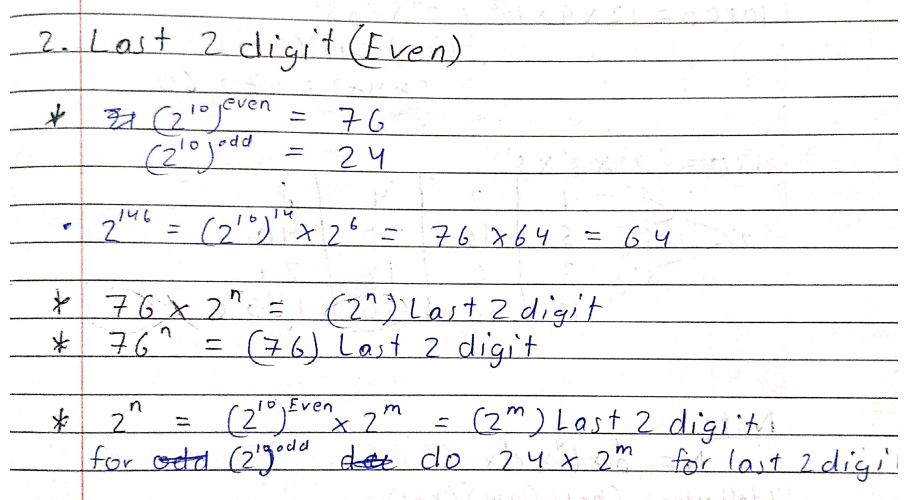 2. Last 2 digit (Even)
* (2¹⁰)ᵉᵛᵉⁿ = 76
(2¹⁰)ᵒᵈᵈ = 24
• 2¹⁴⁶ = (2¹⁰)¹⁴ × 2⁶ = 76 × 64 = 64
* 76 × 2ⁿ = (2ⁿ) Last 2 digit
* 76ⁿ = (76) Last 2 digit
* 2ⁿ = (2¹⁰)ᴱᵛᵉⁿ × 2ᵐ = (2ᵐ) Last 2 digit
for odd (2¹⁰)ᵒᵈᵈ do 24 × 2ᵐ for last 2 digi